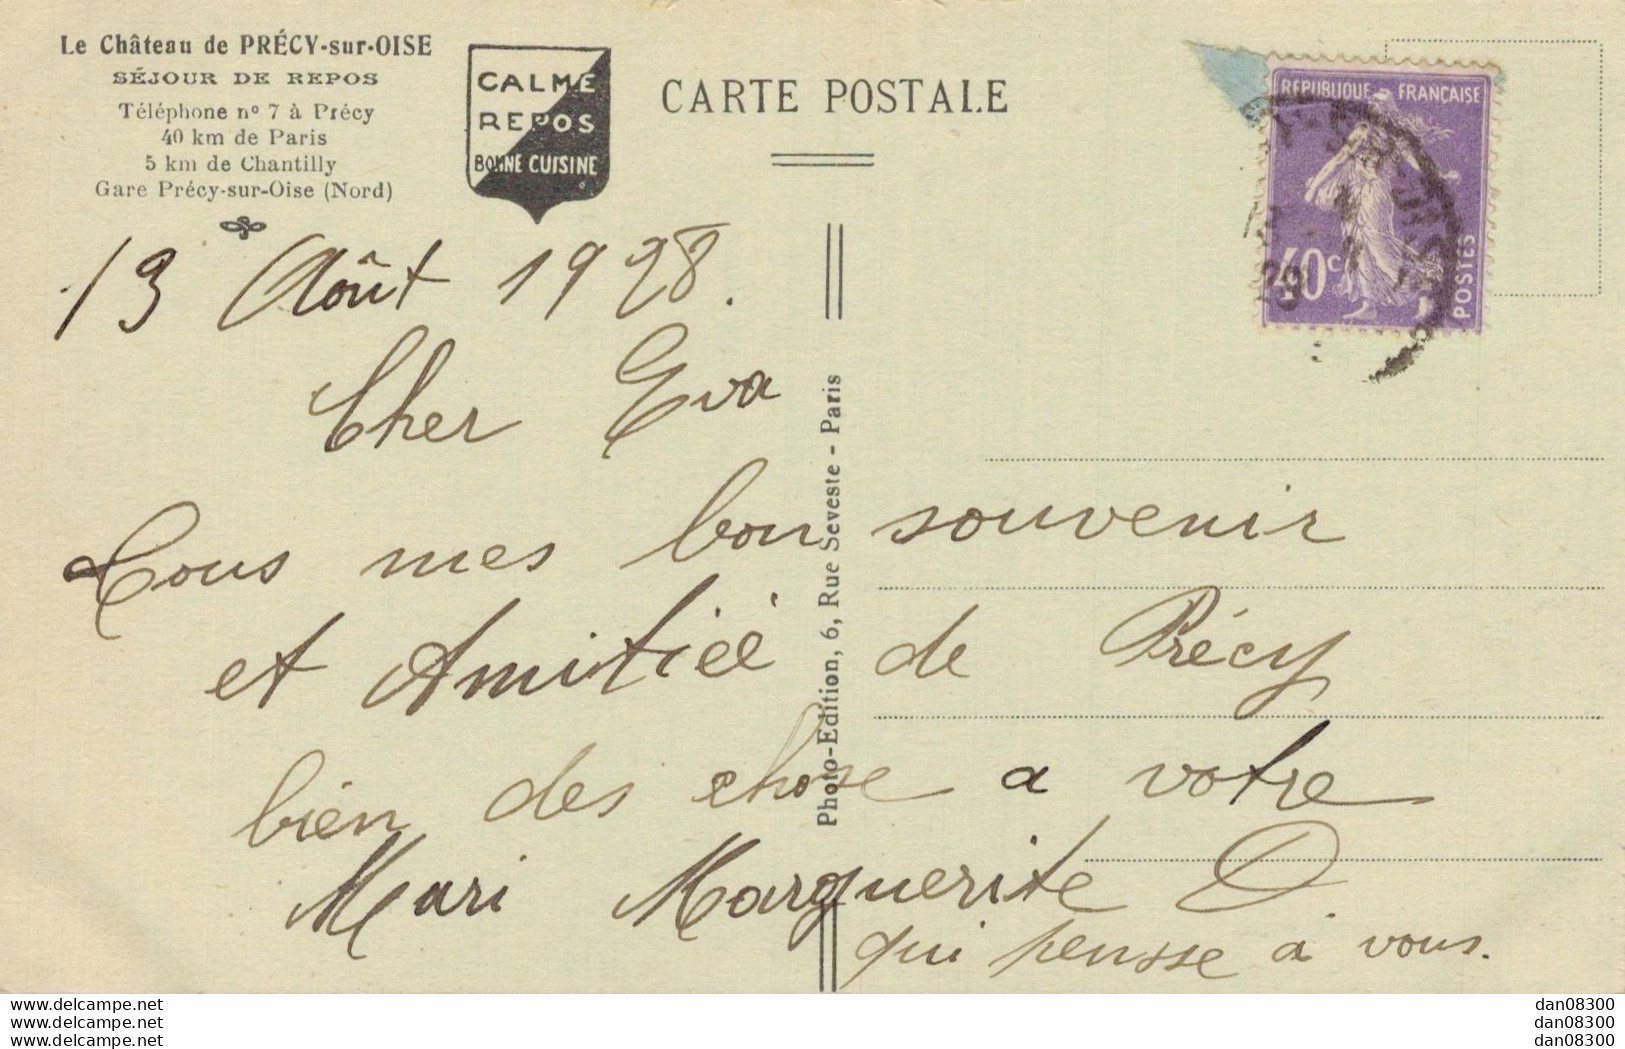 Le Château de PRÉCY-sur-OISE
SÉJOUR DE REPOS
Téléphone nº 7 à Précy
40 km de Paris
5 km de Chantilly
Gare Précy-sur-Oise (Nord)
CALME
REPOS
BONNE CUISINE
CARTE POSTALE
REPUBLIQUE FRANÇAISE
40c
POSTES
13 Août 1928.
Cher Eva
Tous mes bon souvenir
et Amitiéé de Précy
bien des chose a votre
Mari Marguerite O.
qui pensse à vous.
Photo-Edition, 6, Rue Seveste - Paris
www.delcampe.net
www.delcampe.net
www.delcampe.net
dan08300
dan08300
dan08300